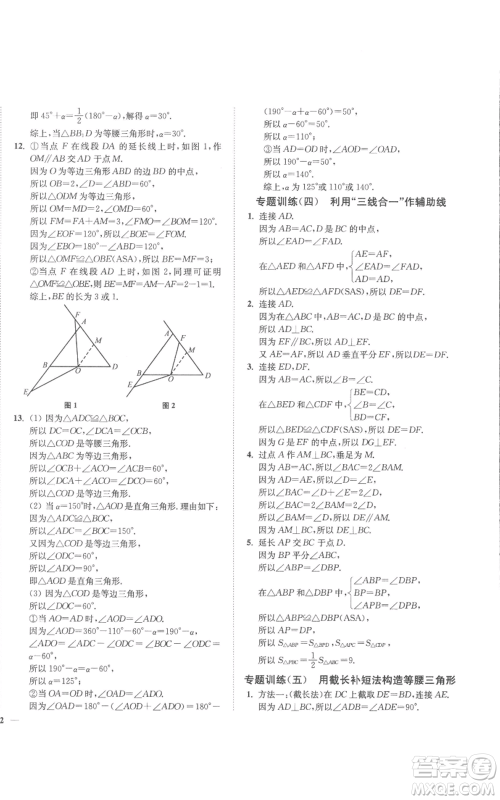 即45°+α=1/2(180°-α),解得α=30°.
综上,当△BB₁D为等腰三角形时,α=30°.
12. ①当点 F 在线段 DA 的延长线上时,如图1,作
OM∥AB 交 AD 于点 M.
因为 O 为等边三角形 ABD 的边 BD 的中点,
所以 OB=2,∠D=∠ABD=60°,
所以△ODM 为等边三角形,
所以 OM=OD=2,∠OMD=60°,
所以 FM=FA+AM=3,∠FMO=∠BOM=120°.
因为∠EOF=120°,所以∠BOE=∠FOM.
因为∠EBO=180°-∠ABD=120°,
所以△EOB≌△FOM(ASA),所以 BE=FM=3;
②当点 F 在线段 AD 上时,如图2,同理可证明
△EOB≌△FOM,所以 BE=MF=AM-AF=2-1=1.
综上,BE 的长为3或1.
F
A
M
B
O
D
E
图1
A
F
M
B
O
D
E
图2
13. (1)因为△ADC≌△BOC,
所以 DC=OC,∠DCA=∠OCB,
所以△COD 是等腰三角形.
因为△ABC 是等边三角形,
所以∠BCO+∠ACO=∠ACB=60°,
所以∠DCA+∠ACO=60°,
所以∠OCD=60°,
所以△COD 是等边三角形.
(2)当 α=150°时,△AOD 是直角三角形.理由如下:
因为△ADC≌△BOC,
所以∠ADC=∠BOC=150°.
又因为△COD 是等边三角形,
所以∠ODC=60°,
所以∠ADO=90°,
即△AOD 是直角三角形.
(3)因为△COD 是等边三角形,
所以∠DOC=60°.
①当 AO=AD 时,∠AOD=∠ADO.
因为∠AOD=360°-110°-60°-α=190°-α,
∠ADO=∠ADC-∠ODC=∠BOC-∠ODC=α-60°,
所以 190°-α=α-60°,
所以 α=125°;
②当 OA=OD 时,∠OAD=∠ADO.
因为∠OAD=180°-(∠AOD+∠ADO)=180°-
(190°-α+α-60°)=50°,
所以 α-60°=50°,
所以 α=110°;
③当 AD=OD 时,∠OAD=∠AOD,
所以 190°-α=50°,
所以 α=140°.
综上,α 为125°或110°或140°.
专题训练(四) 利用“三线合一”作辅助线
1. 连接 AD.
因为 AB=AC,所以∠EAD=∠FAD.
在△AED 和△AFD 中,{AE=AF, ∠EAD=∠FAD, AD=AD,
所以△AED≌△AFD(SAS),所以 DE=DF.
2. 连接 AD.
因为在△ABC 中,AB=AC,D 是 BC 的中点,
所以 AD⊥BC.
因为 EF∥BC,所以 AD⊥EF.
又因为 AE=AF,所以 AD 垂直平分 EF,所以 DE=DF.
3. 连接 DE,DF.
因为 AB=AC,所以∠B=∠C.
在△BED 和△CDF 中,{BE=CD, ∠B=∠C, BD=CF,
所以△BED≌△CDF(SAS),所以 DE=DF.
因为 G 是 EF 的中点,所以 DG⊥EF.
4. 过点 A 作 AN⊥BC 于点 N.
因为 AB=AC,所以∠BAC=2∠BAN.
因为 DE⊥BC,所以 AN∥DE,所以∠BAN=∠D,
所以∠BAC=2∠D.
又因为∠BAC=2∠BAM,
所以∠BAM=∠D,所以 DE∥AM.
5. 延长 AP 交 BC 于点 D.
因为 BP 平分∠ABC,所以∠ABP=∠DBP.
在△ABP 和△DBP 中,{∠ABP=∠DBP, BP=BP, ∠APB=∠DPB,
所以△ABP≌△DBP(ASA),
所以 AP=DP,所以 S△ABP=S△BPD,S△APC=S△DPC,
所以 S△PBC=1/2S△ABC=9.
专题训练(五) 用截长补短法构造等腰三角形
1. 方法一:(截长法)在 DC 上截取 DE=BD,连接 AE.
2